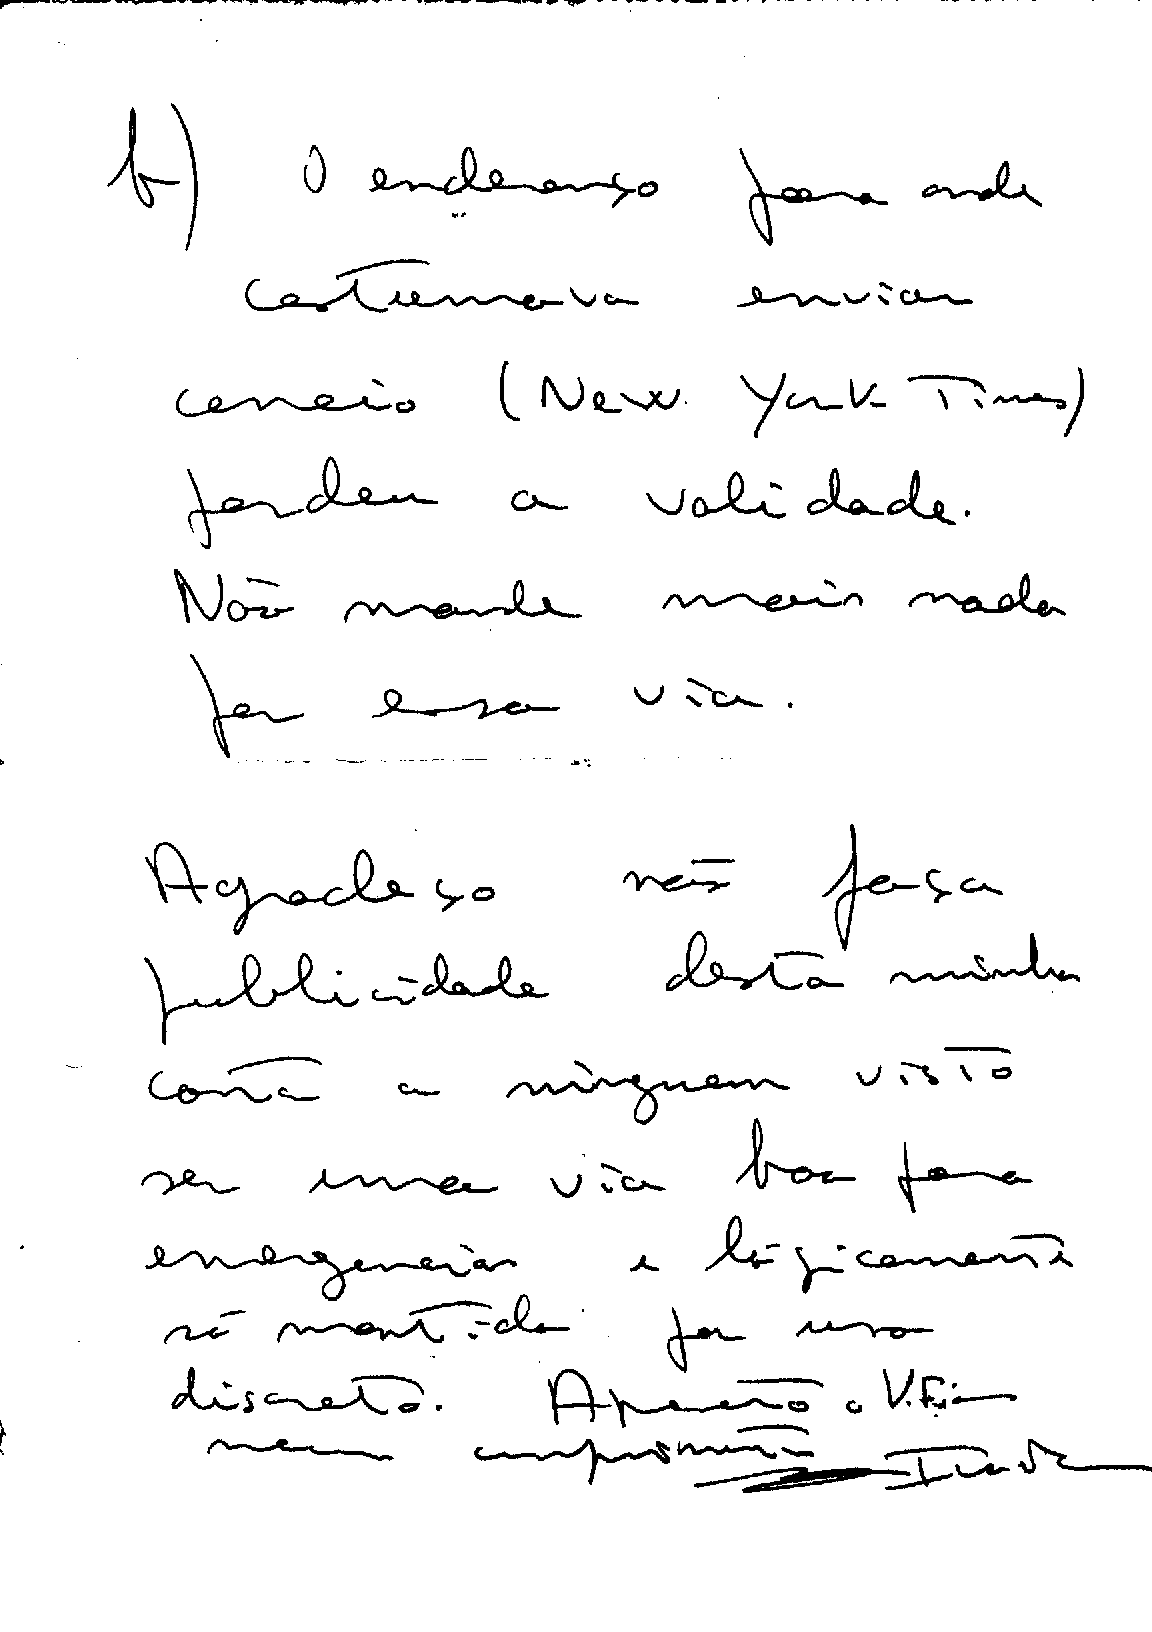 b) O endereço para onde
costumava enviar
correio (New York Times)
perdeu a validade.
Não mande mais nada
por essa via.
Agradeço não faça
publicidade desta minha
conta a ninguem visto
ser uma via boa para
emergencias e lógicamente
só mantida por uso
discreto. Apresento a V.Exia
meus cumprimentos